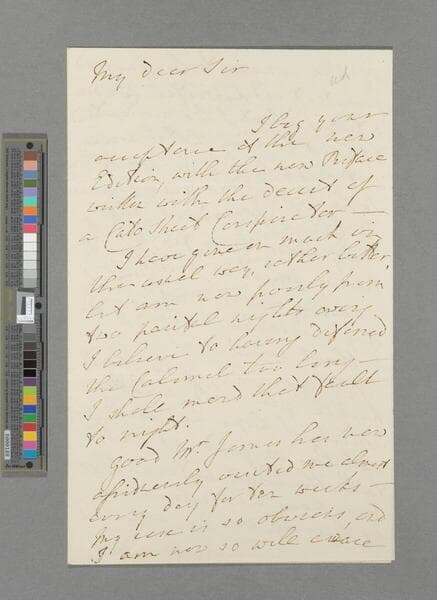 My dear Sir
I beg your
acceptance of the new
Edition, with the new Preface
written with the deceit of
a Cato Street Conspirator —
I have gone on much in
the usual way, rather better,
but am now poorly from
two painful nights owing
I believe to having deferred
the Calomel too long —
I shall mend that fault
to night.
Good Mr. James has now
assiduously visited me almost
every day for ten weeks —
my case is so obvious, and
I am now so well aware